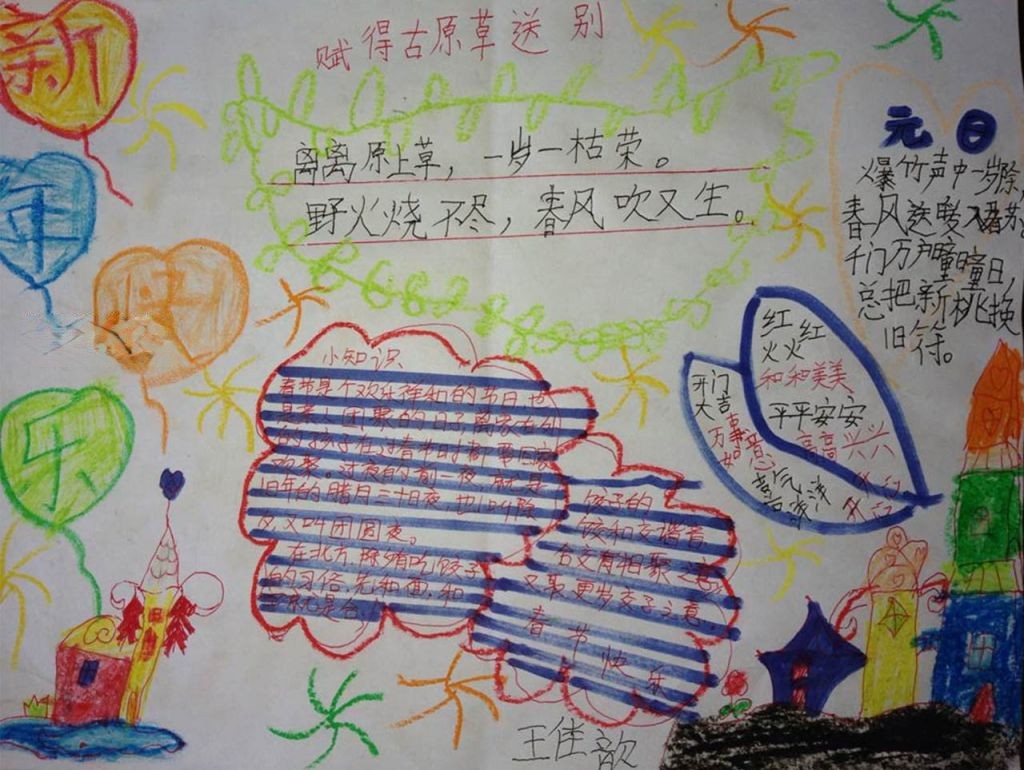 新
年
快
乐
赋得古原草送别
离离原上草，一岁一枯荣。
野火烧不尽，春风吹又生。
元日
爆竹声中一岁除
春风送暖入屠苏
千门万户瞳瞳日，
总把新桃换
旧符。
红红
火火
和和美美
平平安安
高高兴兴
开门
大吉
万事
如意
小知识
春节是个欢乐祥和的节日，也
是亲人团聚的日子，离家在外
的孩子在过春节时都要回家
欢聚。过年的前一夜，就是
旧年的腊月三十日夜，也叫除
夕，又叫团圆夜。
在北方，除夕有吃饺子
的习俗，先和面，和
字就是合，
饺子的
饺和交谐音
合交有相聚之意，
又取更岁交子之意，
春节快乐
王佳歆